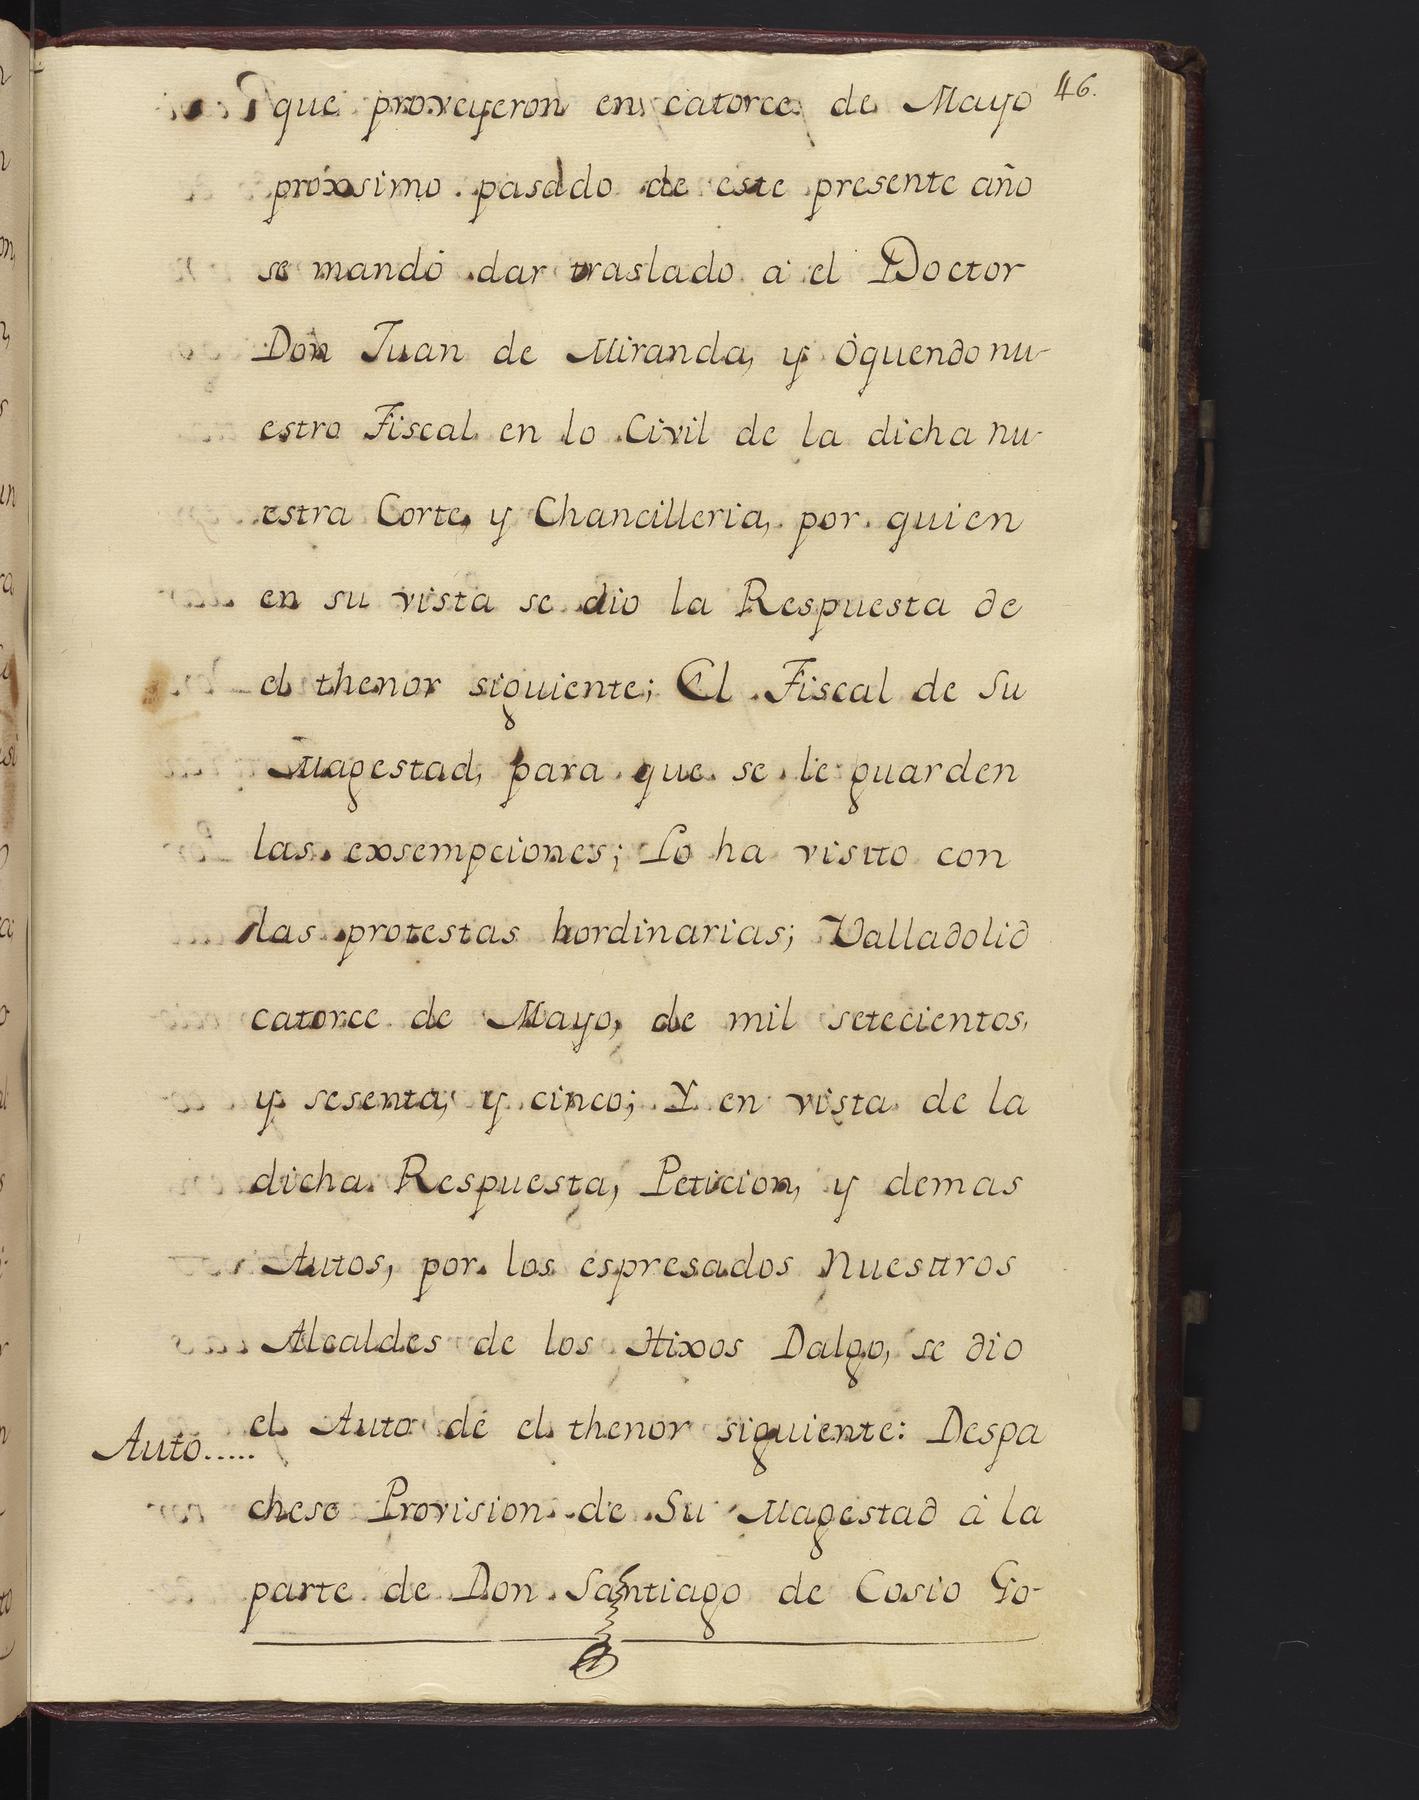 46.
que proveyeron en catorce de Mayo
proxsimo pasado de este presente año
se mandó dar traslado á el Doctor
Don Juan de Miranda, y Oquendo nu-
estro Fiscal en lo Civil de la dicha nu-
estra Corte, y Chancilleria, por quien
en su vista se dio la Respuesta de
el thenor siguiente; El Fiscal de Su
Magestad, para que se le guarden
las exsempciones; Lo ha vistto con
las protestas hordinarias; Valladolid
catorce de Mayo, de mil setecientos,
y sesenta, y cinco; Y en vista de la
dicha Respuesta, Peticion, y demas
Autos, por los espresados Nuesttros
Alcaldes de los Hixos Dalgo, se dio
el Auto de el thenor siguiente: Despa
Auto.....
chese Provision de Su Magestad á la
parte de Don Santiago de Cosio Go-